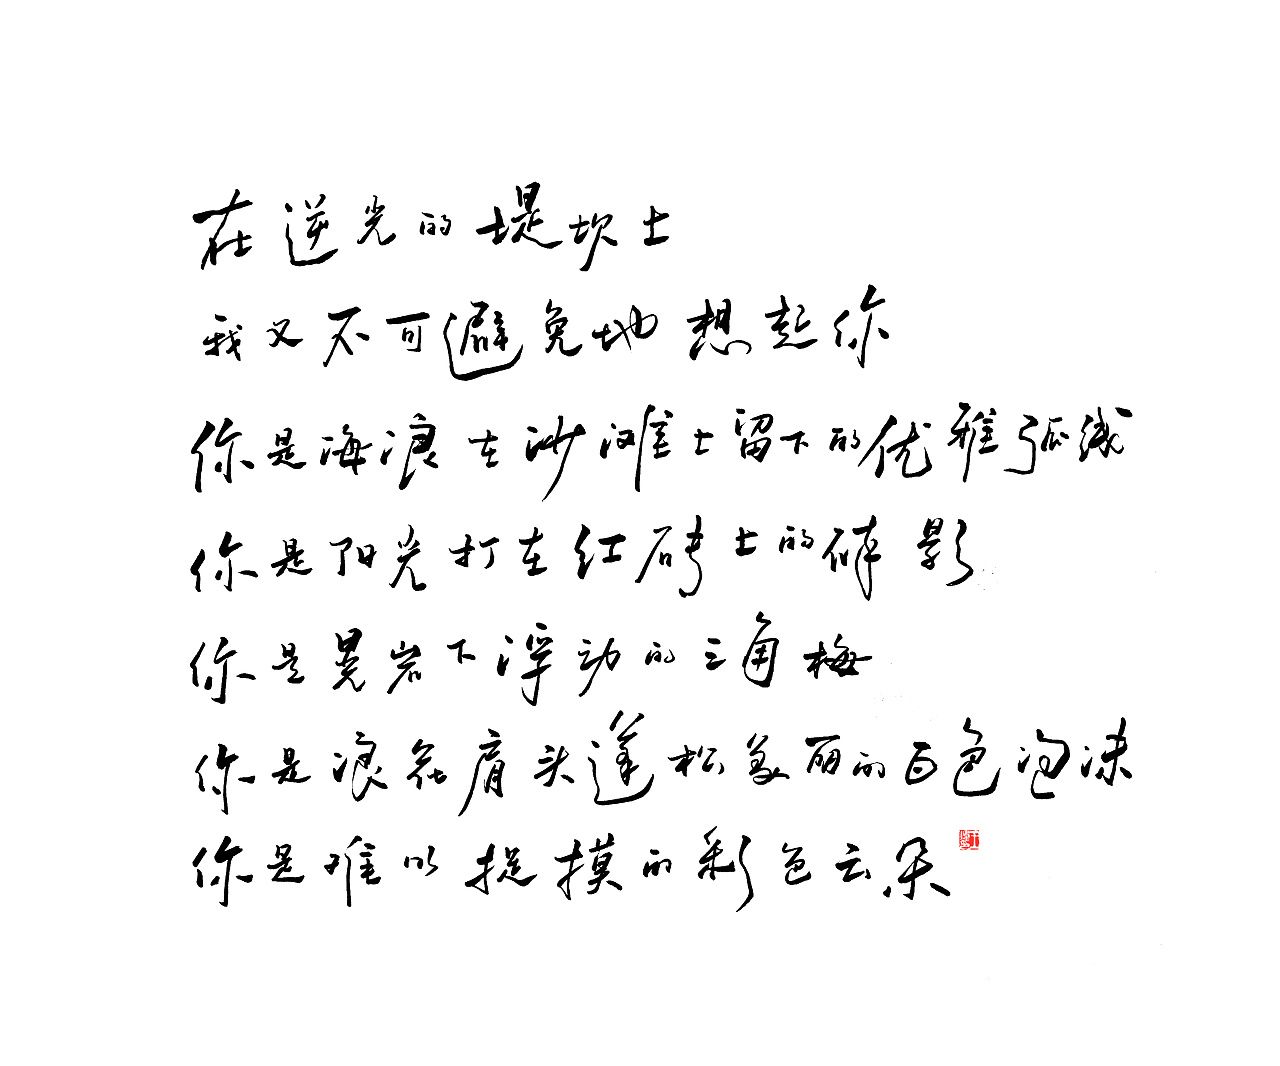 在逆光的堤坎上
我又不可避免地想起你
你是海浪在沙滩上留下的优雅弧线
你是阳光打在红砖上的碎影
你是晃岩下浮动的三角梅
你是浪花肩头蓬松美丽的白色泡沫
你是难以捉摸的彩色云朵